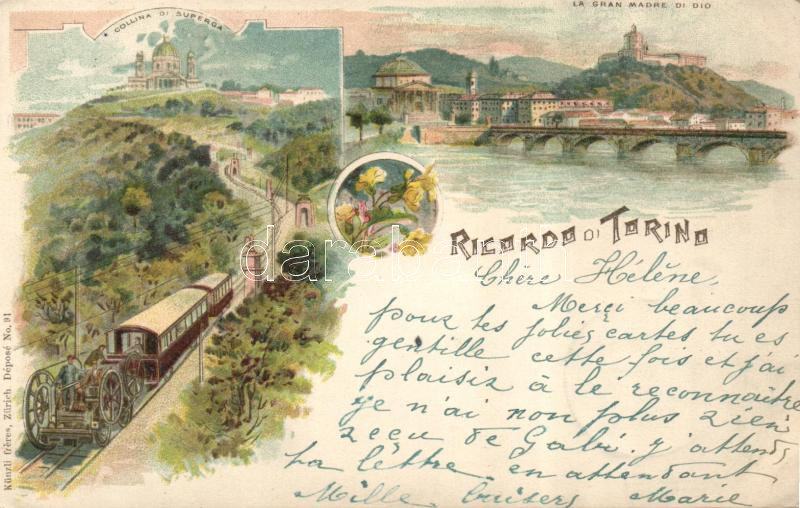 COLLINA DI SUPERGA
LA GRAN MADRE DI DIO
RICORDO DI TORINO
Künzli frères, Zürich Déposé No. 91
darabanth
Chère Hélène,
Merçi beaucoup
pour tes jolies cartes tu es
gentille cette fois et j'ai
plaisir à le reconnaître
je n'ai non plus rien
reçu de Gabi. j'attends
ta lèttre. en attendant
Mille baisers Marie